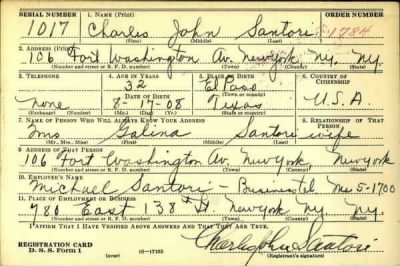 SERIAL NUMBER 1. NAME (Print) ORDER NUMBER
1017 Charles John Santori 1784
(First) (Middle) (Last)
2. ADDRESS (Print)
106 Fort Washington Av. New York, Ny. Ny.
(Number and street or R. F. D. number) (Town) (County) (State)
3. TELEPHONE 4. AGE IN YEARS 5. PLACE OF BIRTH 6. COUNTRY OF CITIZENSHIP
32 El Paso
(Town or county)
DATE OF BIRTH
none 8-17-08 Texas U.S.A.
(Exchange) (Number) (Mo.) (Day) (Yr.) (State or country)
7. NAME OF PERSON WHO WILL ALWAYS KNOW YOUR ADDRESS 8. RELATIONSHIP OF THAT PERSON
Mrs Galina Santori wife
(Mr., Mrs., Miss) (First) (Middle) (Last)
9. ADDRESS OF THAT PERSON
106 Fort Washington Av. New York, New York
(Number and street or R. F. D. number) (Town) (County) (State)
10. EMPLOYER'S NAME
Michael Santori - Business Tel 5-1700
11. PLACE OF EMPLOYMENT OR BUSINESS
780 East 138th St New York Ny Ny.
(Number and street or R. F. D. number) (Town) (County) (State)
I AFFIRM THAT I HAVE VERIFIED ABOVE ANSWERS AND THAT THEY ARE TRUE.
REGISTRATION CARD
D. S. S. Form 1 (over) Charles John Santori
(Registrant's signature)